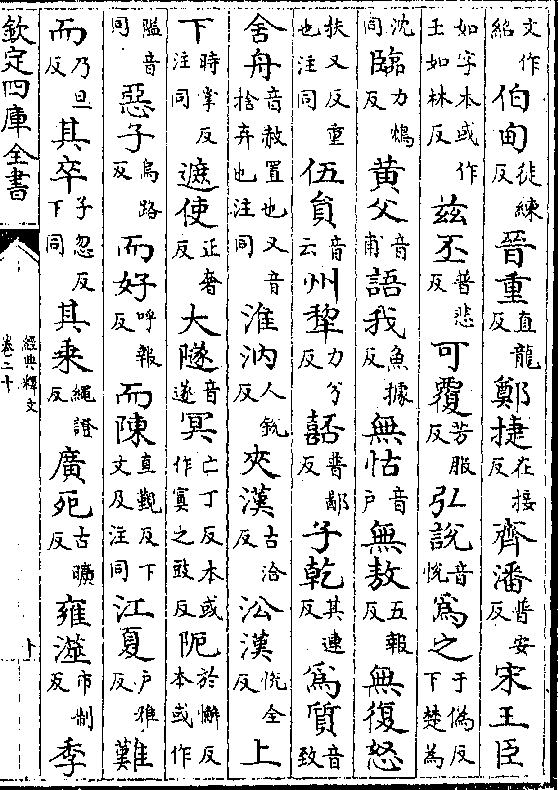 文作紹伯甸徒練反晉重直龍反鄭捷在接反齊潘普安反宋王臣
如字本或作壬如林反兹丕普悲反可覆芳服反弘說音悅爲之于偽反下楚爲
沈同臨力鴆反黃父音甫語我魚據反無怙音戶無敖五報反無復怒
扶又反重也注同伍員音云州犂力兮反嚭普鄙反子乾其連反爲質音致
舍舟音赦置也又音捨弃也注同淮汭人銳反夾漢古洽反㳂漢悅全反上
下時掌反注同遮使正奢反大隧音遂冥亡丁反本或作寘之豉反阨於懈反本或作
隘音同惡子烏路反而好呼報反而陳直覲反下文及注同江夏戶雅反難
而乃旦反其卒子忽反下同其乘繩證反廣死古曠反雍澨市制反季
欽定四庫全書
經典釋文
卷二十